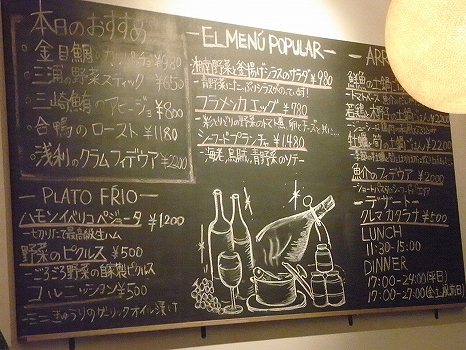 本日のおすすめ
・金目鯛のカルパッチョ ¥980
・三浦の野菜スティック ¥650
・三崎鮪のアヒージョ ¥800
・合鴨のロースト ¥1180
・浅利のクラムフィデウア ¥2200
—PLATO FRIO—
ハモンイベリコベジョータ ¥1200
野菜のピクルス ¥500
—ごろごろ野菜の自家製ピクルス
コルニッション ¥500
—ミニきゅうりのガーリックオイル漬け
—EL MENÚ POPULAR—
湘南野菜と釜揚げシラスのサラダ ¥980
フラメンカエッグ ¥780
シーフードプランチャ ¥1480
—海老、烏賊、青野菜のソテー
ARR
鮮魚の土鍋ごはん
牡蠣と葱の土鍋ごはん ¥2200
魚介のフィデウア ¥2000
—デザート—
クレマカタラナ ¥500
LUNCH
11:30-15:00
DINNER
17:00-24:00(平日)
17:00-27:00